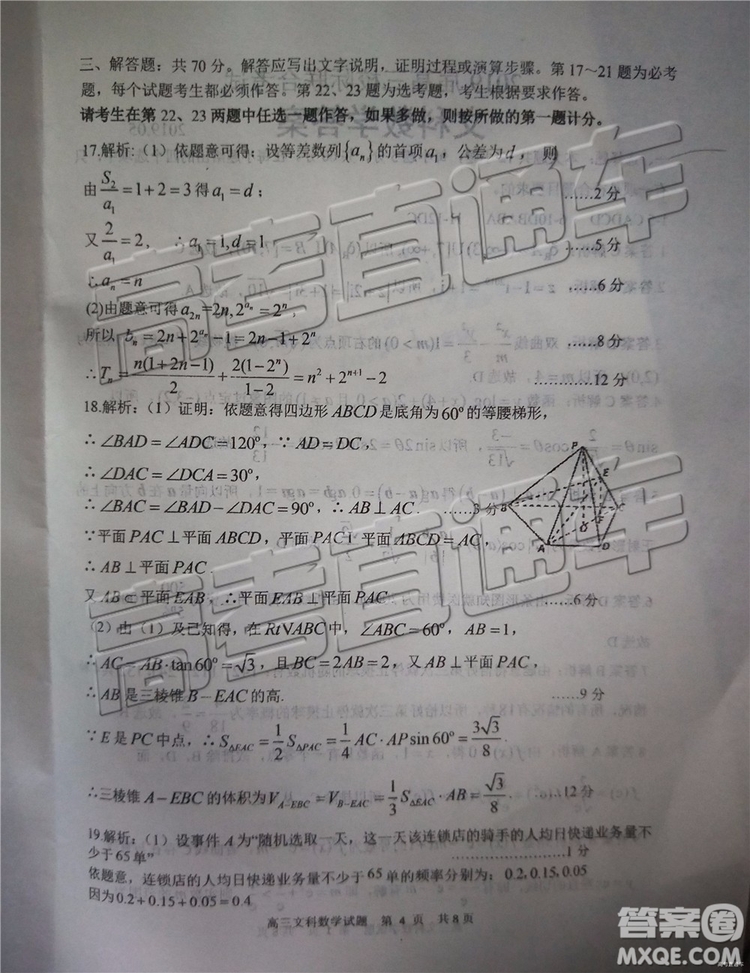 三、解答题：共 70 分。解答应写出文字说明，证明过程或演算步骤。第 17～21 题为必考
题，每个试题考生都必须作答。第 22、23 题为选考题，考生根据要求作答。
请考生在第 22、23 两题中任选一题作答，如果多做，则按所做的第一题计分。
17.解析:（1）依题意可得：设等差数列{aₙ}的首项a₁，公差为d， 则
由S₂/a₁=1+2=3得a₁=d； ……2分
又2/a₁=2， ∴a₁=1,d=1 ……5分
∴aₙ=n ……6分
(2)由题意可得a₂ₙ=2n,2^(aₙ)=2ⁿ,
所以 bₙ=2n+2^(aₙ)-1=2n-1+2ⁿ ……8分
∴Tₙ=n(1+2n-1)/2+2(1-2ⁿ)/(1-2)=n²+2ⁿ⁺¹-2 ……12分
18.解析:（1）证明：依题意得四边形ABCD是底角为60°的等腰梯形，
∴∠BAD=∠ADC=120°，∵AD=DC，
∴∠DAC=∠DCA=30°，
∴∠BAC=∠BAD-∠DAC=90°，∴AB⊥AC. ……3分
∵平面PAC⊥平面ABCD，平面PAC I 平面ABCD=AC，
∴AB⊥平面PAC.
又AB⊂平面EAB，∴平面EAB⊥平面PAC. ……6分
（2）由（1）及已知得，在RtVABC中，∠ABC=60°，AB=1，
∴AC=AB·tan60°=√3，且BC=2AB=2，又AB⊥平面PAC，
∴AB是三棱锥B-EAC的高. ……9分
∵E是PC中点，∴S△EAC=1/2 S△PAC=1/4 AC·AP sin60°=3√3/8.
∴三棱锥A-EBC的体积为V A-EBC=V B-EAC=1/3 S△EAC·AB=√3/8. ……12分
P
E
B
C
A
D
19解析:（1）设事件A为“随机选取一天，这一天该连锁店的骑手的人均日快递业务量不
少于65单” ………1分
依题意，连锁店的人均日快递业务量不少于65单的频率分别为：0.2,0.15,0.05
因为0.2+0.15+0.05=0.4
高三文科数学试题 第 4 页 共 8 页
高考直通车
高考直通车
答案圈
MXQE.COM